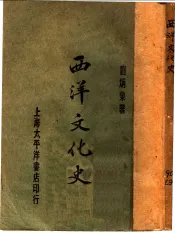 劉炳榮著
西洋文化史
上海太平洋書店印行
西洋文化史